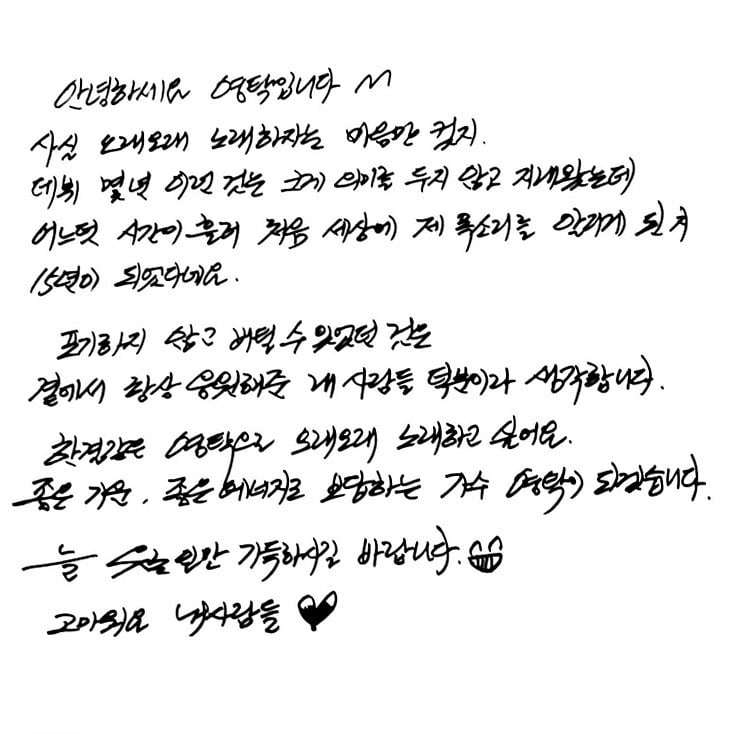 안녕하세요 영탁입니다 ^^
사실 오래오래 노래하자는 마음만 컸지.
데뷔 몇년 이런 것는 크게 의미를 두지 않고 지내왔는데
어느덧 시간이 흘러 처음 세상에 제 목소리를 알리게 된 지
15년이 되었다네요.
포기하지 않고 버틸 수 있었던 것은
곁에서 항상 응원해준 내 사람들 덕분이라 생각합니다.
한결같은 영탁으로 오래오래 노래하고 싶어요.
좋은 기운, 좋은 에너지로 보답하는 가수 영탁이 되겠습니다.
늘 웃는 일만 가득하시길 바랍니다.
고마워요 내사람들